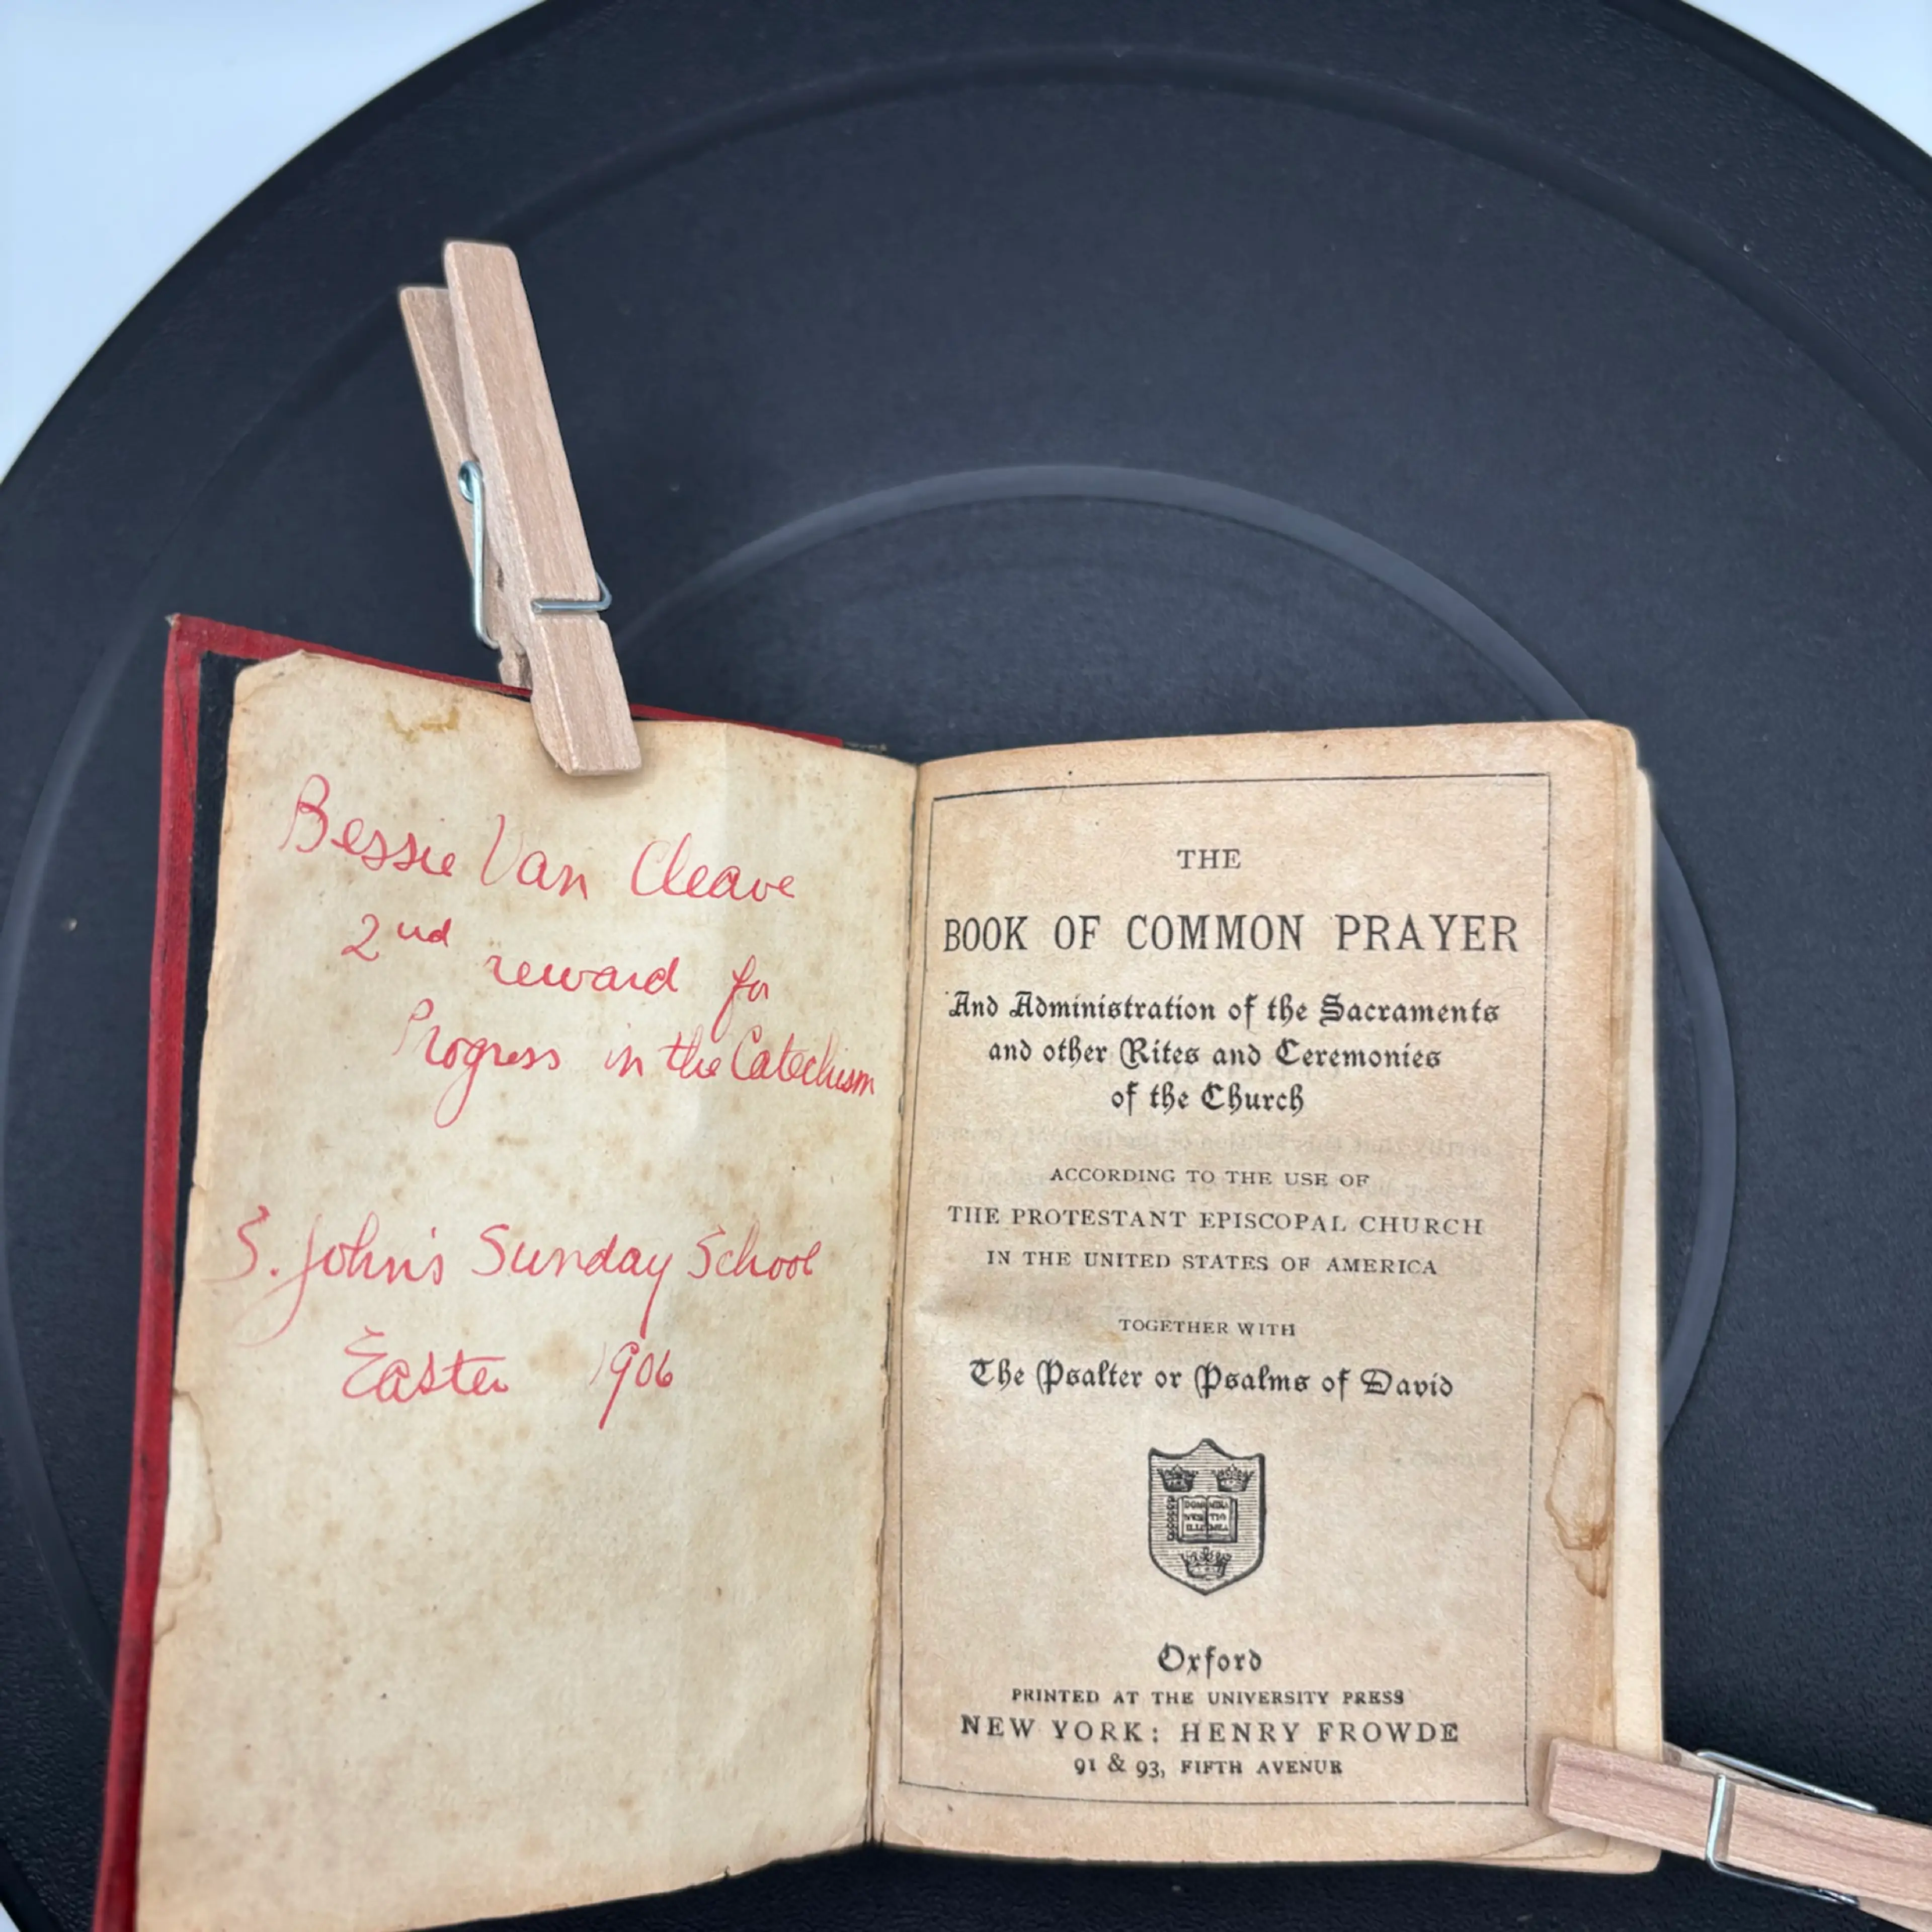 Bessie Van Cleave
2nd reward for
Progress in the Catechism
S. John's Sunday School
Easter 1906
THE
BOOK OF COMMON PRAYER
And Administration of the Sacraments
and other Rites and Ceremonies
of the Church
ACCORDING TO THE USE OF
THE PROTESTANT EPISCOPAL CHURCH
IN THE UNITED STATES OF AMERICA
TOGETHER WITH
The Psalter or Psalms of David
Oxford
PRINTED AT THE UNIVERSITY PRESS
NEW YORK: HENRY FROWDE
91 & 93, FIFTH AVENUE